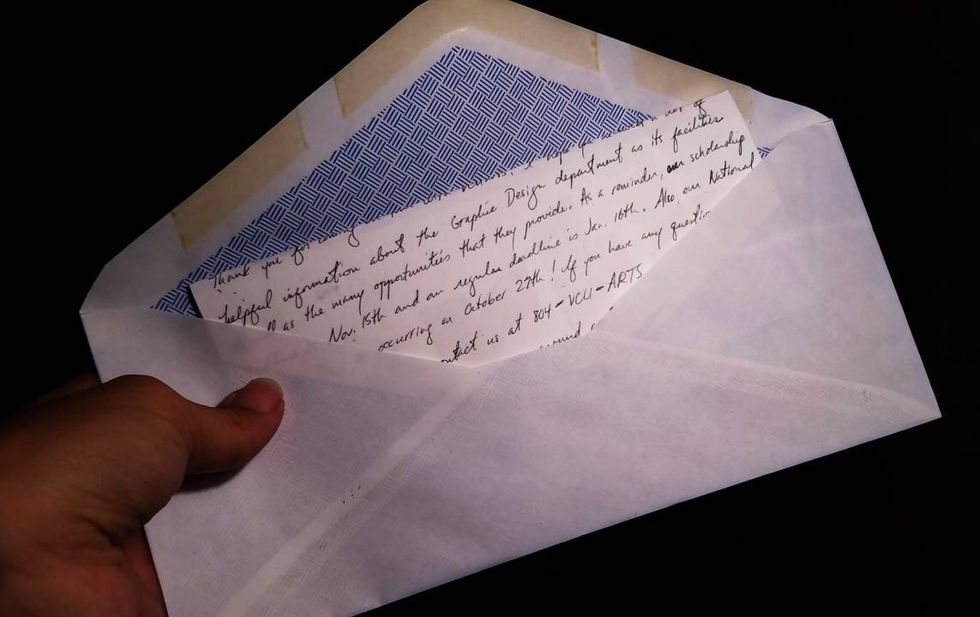 Thank you for
helpful information about the Graphic Design department as its facilities
as the many opportunities that they provide. As a reminder, our scholarship
Nov. 15th and our regular deadline is Jan. 16th. Also, our National
occurring on October 27th! If you have any question
contact us at 804-VCU-ARTS